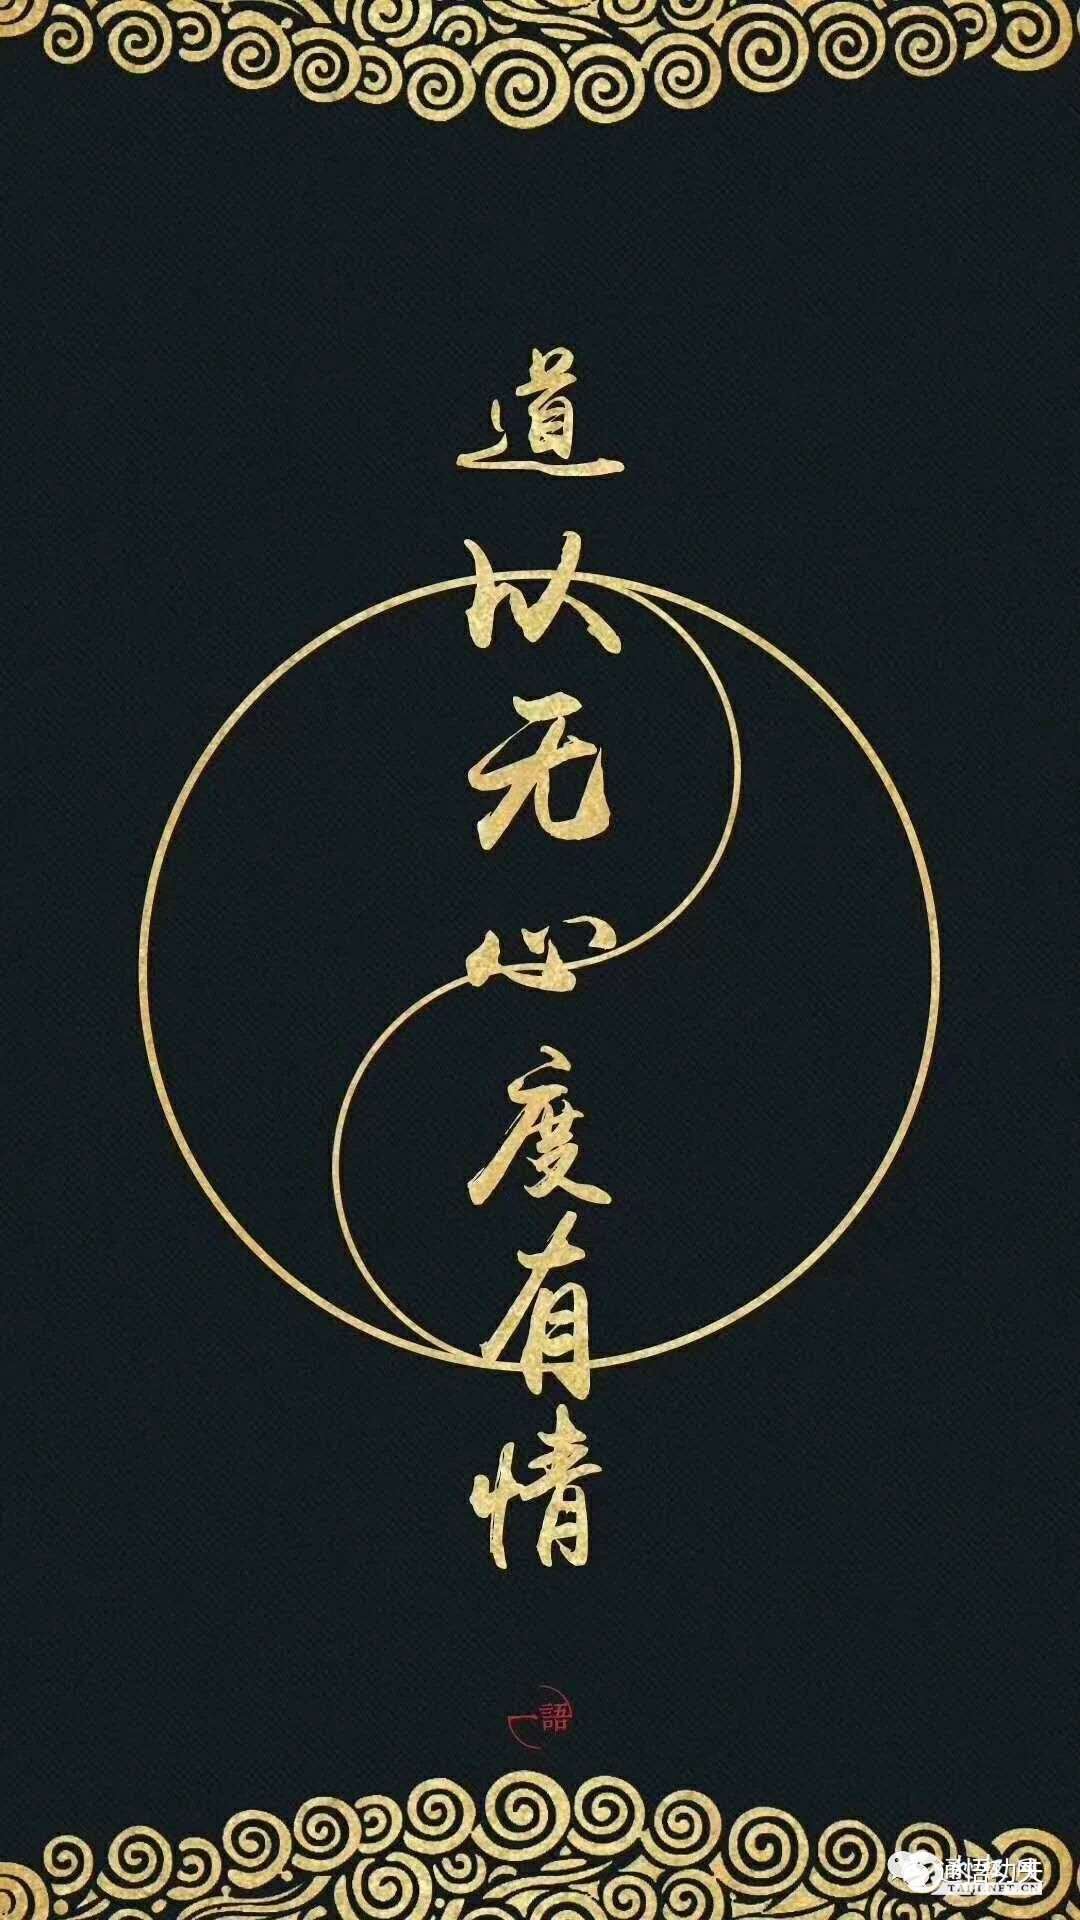 道以无心度有情
一語
通悟功夫
TAIJI.NET.CN